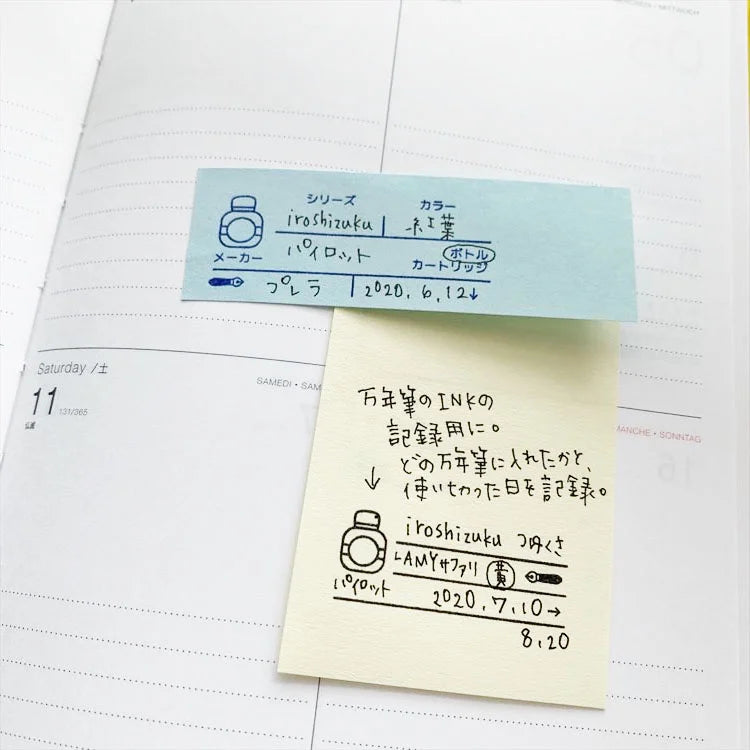 MERCREDI • MITTWOCH
シリーズ カラー
iroshizuku 紅葉
パイロット ボトル
メーカー カートリッジ
プレラ 2020.6.12↓
Saturday /土
SAMEDI • SAM
11 131/365
仏滅
MANCHE • SONNTAG
16
万年筆のINKの
記録用に。
どの万年筆に入れたかと、
↓ 使いきった日を記録。
iroshizuku つゆくさ
LAMYサファリ 黄
パイロット 2020.7.10→
8.20